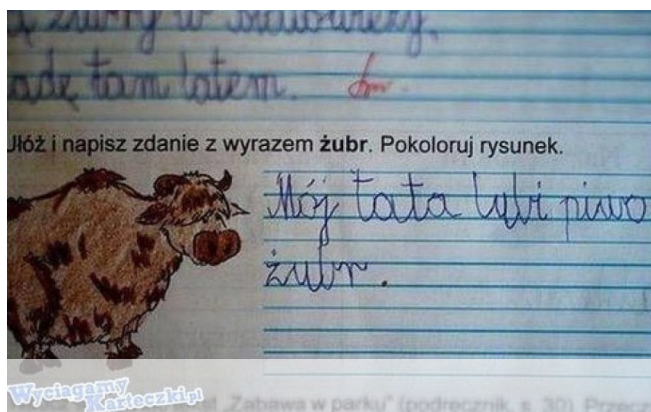 żubry w
adę tam latem.
Ułóż i napisz zdanie z wyrazem żubr. Pokoloruj rysunek.
Mój tata lubi piwo
żubr.
Wyciągamy
Karteczki.pl
"Zabawa w parku" (podręcznik, s. 30). Przecz